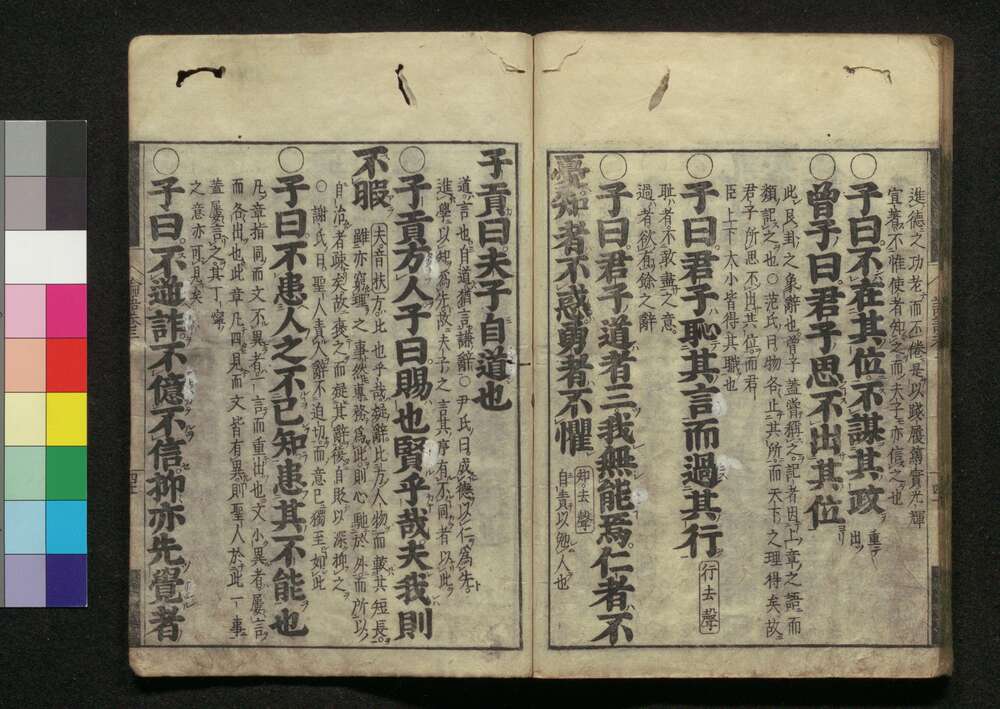 進德之功老而不倦是以踐履篤實光輝
宣著不惟使者知之而夫子亦信之也
○子曰不在其位不謀其政 重出
○曾子曰君子思不出其位
此艮卦之象辭也曾子蓋嘗稱之記者因上章之語而
類記之也○范氏曰物各止其所而天下之理得矣故
君子所思不出其位而君
臣上下大小皆得其職也
○子曰君子恥其言而過其行 行去聲
恥者不敢盡之意
過者欲有餘之辭
○子曰君子道者三我無能焉仁者不
憂知者不惑勇者不懼 知去聲 自責以勉人也
子貢曰夫子自道也
道言也自道猶言謙辭○尹氏曰成德以仁爲先
進學以知爲先故夫子之言其序有不同者以此
○子貢方人子曰賜也賢乎哉夫我則
不暇 夫音扶方比也乎哉疑辭比方人物而較其短長
雖亦窮理之事然專務爲此則心馳於外而所以
自治者疎矣故褒之而疑其辭復自貶以深抑之
○謝氏曰聖人責人辭不迫切而意已獨至如此
○子曰不患人之不己知患其不能也
凡章指同而文不異者一言而重出也文小異者屢言
而各出也此章凡四見而文皆有異則聖人於此一事
蓋屢言之其丁寧
之意亦可見矣
○子曰不逆詐不億不信抑亦先覺者